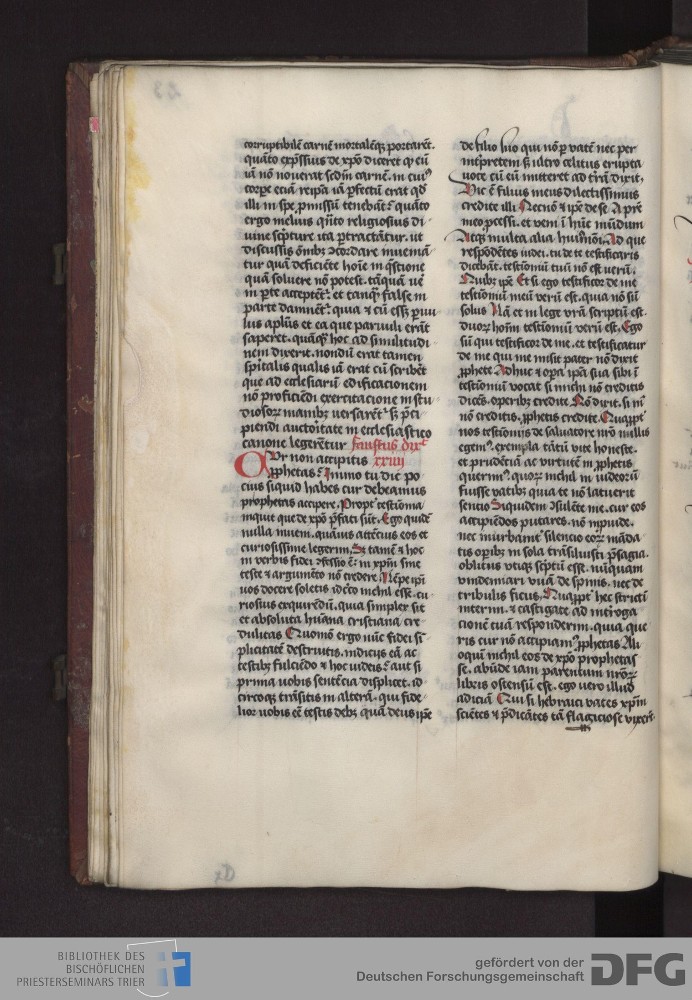 corruptibilē carnē mortalēqꝫ portaret.
quāto exp̄ssius de xp̄o diceret qꝫ eū
iā nō nouerat scdm̄ carnē. in cui⁹
corpe etiā reipa iā ꝑfectū erat qd̄
illi in spe ꝓmissū tenebat᷑ quāto
ergo melius qn̄to religiosius di
uine sc̄pture ita ꝑtractātur. ut
discussis ōmbꝫ ↄcordare inueniā
tur quā deficiēte hoīe in q̄stione
quā soluere nō potest. tāquā ue
in ꝑte acceptēt᷑. et tanqꝫ false in
parte damnēt᷑. quia ⁊ cū essꝫ ꝑuu
lus aplūs et ea que paruuli erāt
saperet. quāqꝫ hoc ad similitudi
nem dixerit. nondū erat tamen
spiritalis qualis iā erat cū scribēt
que ad ecclesiarū edificacionem
nō proficiēdi exercitacione in stu
diosoꝝ manibꝫ uersarēt᷑ sꝫ p̄ci
piendi auctoritate in ecclesiastico
canone legerētur Faustus dix͛
Our non accipitis xxiiij
ꝓphetas? Immo tu dic po
cius siquid habes cur debeamus
prophetas accipere. Propt᷑ testīonia
inquit que de xp̄o p̄fati sūt. Ego quidē
nulla inueni. quāuis attēcius eos et
curiosissime legerim. Sꝫ tamē ⁊ hoc
in uerbis fidei ↄfessio ē. in xp̄m sine
teste ⁊ argumēto nō credere. Nēpe ip̄i
uos docere soletis idcīo nichil esse. cu
riosius exquirēdū. quia simplex sit
et absoluta hūana cristiana cre
dulitas Quomō ergo nūc fidei sī
plicitatē destruitis. indicijs eā ac
testibꝫ fulciēdo ⁊ hoc iudeis? aut si
prima uobis sentēcia displicet. id
circoqꝫ trāsitis in alterā. qui fide
lior uobis eē testis debꝫ quā deus ip̄e
de filio suo qui nō ꝑ vatē nec per
int᷑pretem sꝫ ultro celitus erupta
uoce cū eū mitteret ad t᷑rā dixit.
Hic ē filius meus dilectissimus
credite illi. Necnō ⁊ ip̄e de se. A pr̄e
meo ꝓcessi. et veni ī hūc mūdum
Atqꝫ multa alia hui⁹mōi. Ad que
respōdētes iudei. tu de te testificaris
dicebāt. testioniū tuū nō est uerū.
Quibꝫ ip̄e Et si ego testificor de me
testioniū meū verū est. quia nō sū
solus Nā et in lege vr̄a scriptū est.
duoꝝ hoīm testioniū verū est. Ego
sū qui testificor de me. et testificatur
de me qui me misit pater nō dixit
ꝓphete Adhuc ⁊ oꝑa ip̄a sua sibi ī
testioniū vocat si michi nō creditis
dicēs. operibꝫ credite. Nō dixit. si m̄
nō creditis. ꝓphetis credite. Quaꝓpt᷑
nos testionijs de saluatore nr̄o nullis
egem⁹. exempla tātū vite honeste.
et prudēciā ac virtutē in ꝓphetis
querim⁹. quoꝝ nichil in iudeorū
fuisse vatibꝫ quia te nō latuerit
sentio Siquidem ↄsulēte me. cur eos
accipiēdos putares. nō inpuide.
nec inurbane silencio eoꝝ māda
tis oꝑibꝫ in sola trāsiluisti p̄sagia.
oblitus vtiqꝫ sc̄ptū esse. nūquam
vindemiari vuā de spinis. nec de
tribulis ficus. Quaꝓpt᷑ hec stricti
interim. ⁊ castigate ad int᷑roga
cionē tuā responderim. quia que
ris cur nō accipiam⁹ ꝓphetas Ali
oquī nichil eos de xp̄o prophetas
se. abūde iam parentum nr̄oꝝ
libris ostensū est. ego uero illud
adiciā Qui si hebraici vates xp̄m
sciētes ⁊ p̄dicātes tā flagiciose vixer̄t
BIBLIOTHEK DES
BISCHÖFLICHEN
PRIESTERSEMINARS TRIER
gefördert von der
Deutschen Forschungsgemeinschaft
DFG